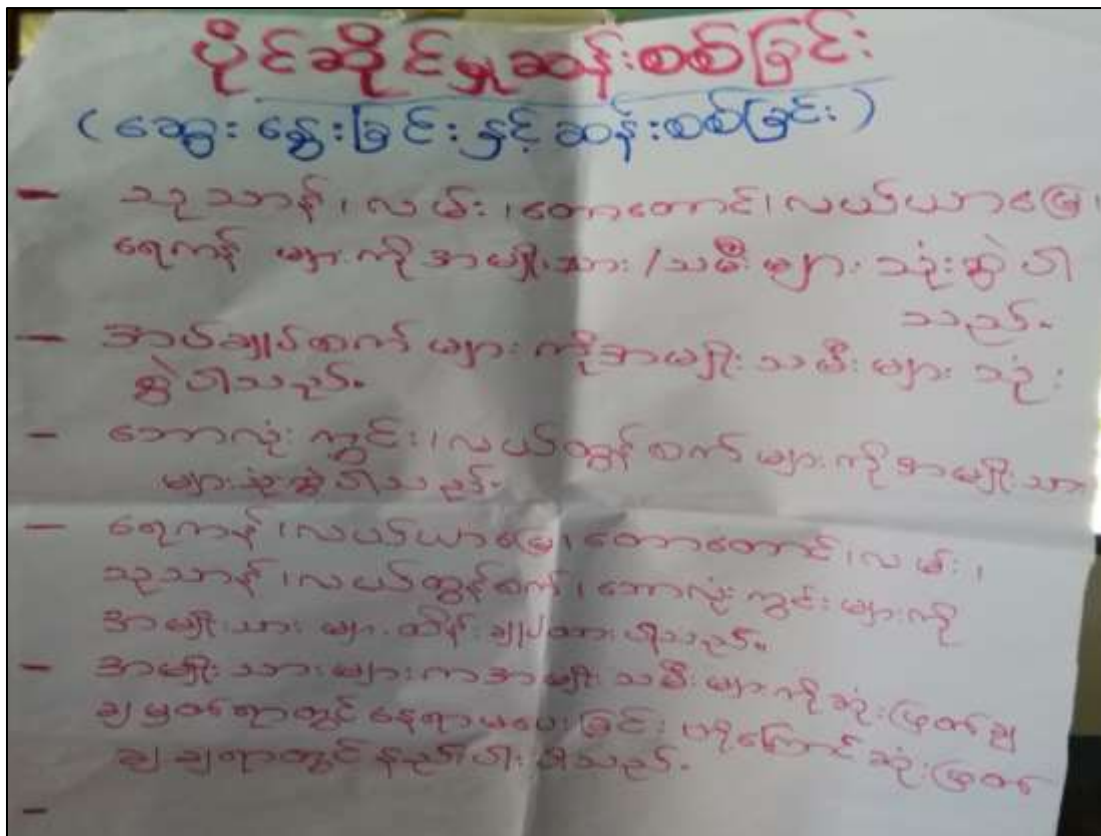 ပိုင်ဆိုင်မှုဆန်းစစ်ခြင်း
(ဆွေးနွေးခြင်းနှင့်ဆန်းစစ်ခြင်း)
- သုသာန်၊ လမ်း၊ တောတောင်၊ လယ်ယာမြေ၊
ရေကန် များကိုအမျိုးသား/သမီးများ သုံးစွဲပါ
သည်။
- အပ်ချုပ်စက် များကိုအမျိုးသမီးများ သုံး
စွဲပါသည်။
- ဘောလုံးကွင်း၊ လယ်ထွန်စက်များကိုအမျိုးသား
များသုံးစွဲပါသည်။
- ရေကန်၊ လယ်ယာမြေ၊ တောတောင်၊ လမ်း၊
သုသာန်၊ လယ်ထွန်စက်၊ ဘောလုံးကွင်းများကို
အမျိုးသားများထိန်းချုပ်ထားပါသည်။
- အမျိုးသားများကအမျိုးသမီးများကိုဆုံးဖြတ်ချ
ချမှတ်ရာတွင်နေရာမပေးခြင်း ကြောင့်ဆုံးဖြတ်
ချချရာတွင်နည်းပါးပါသည်။
-